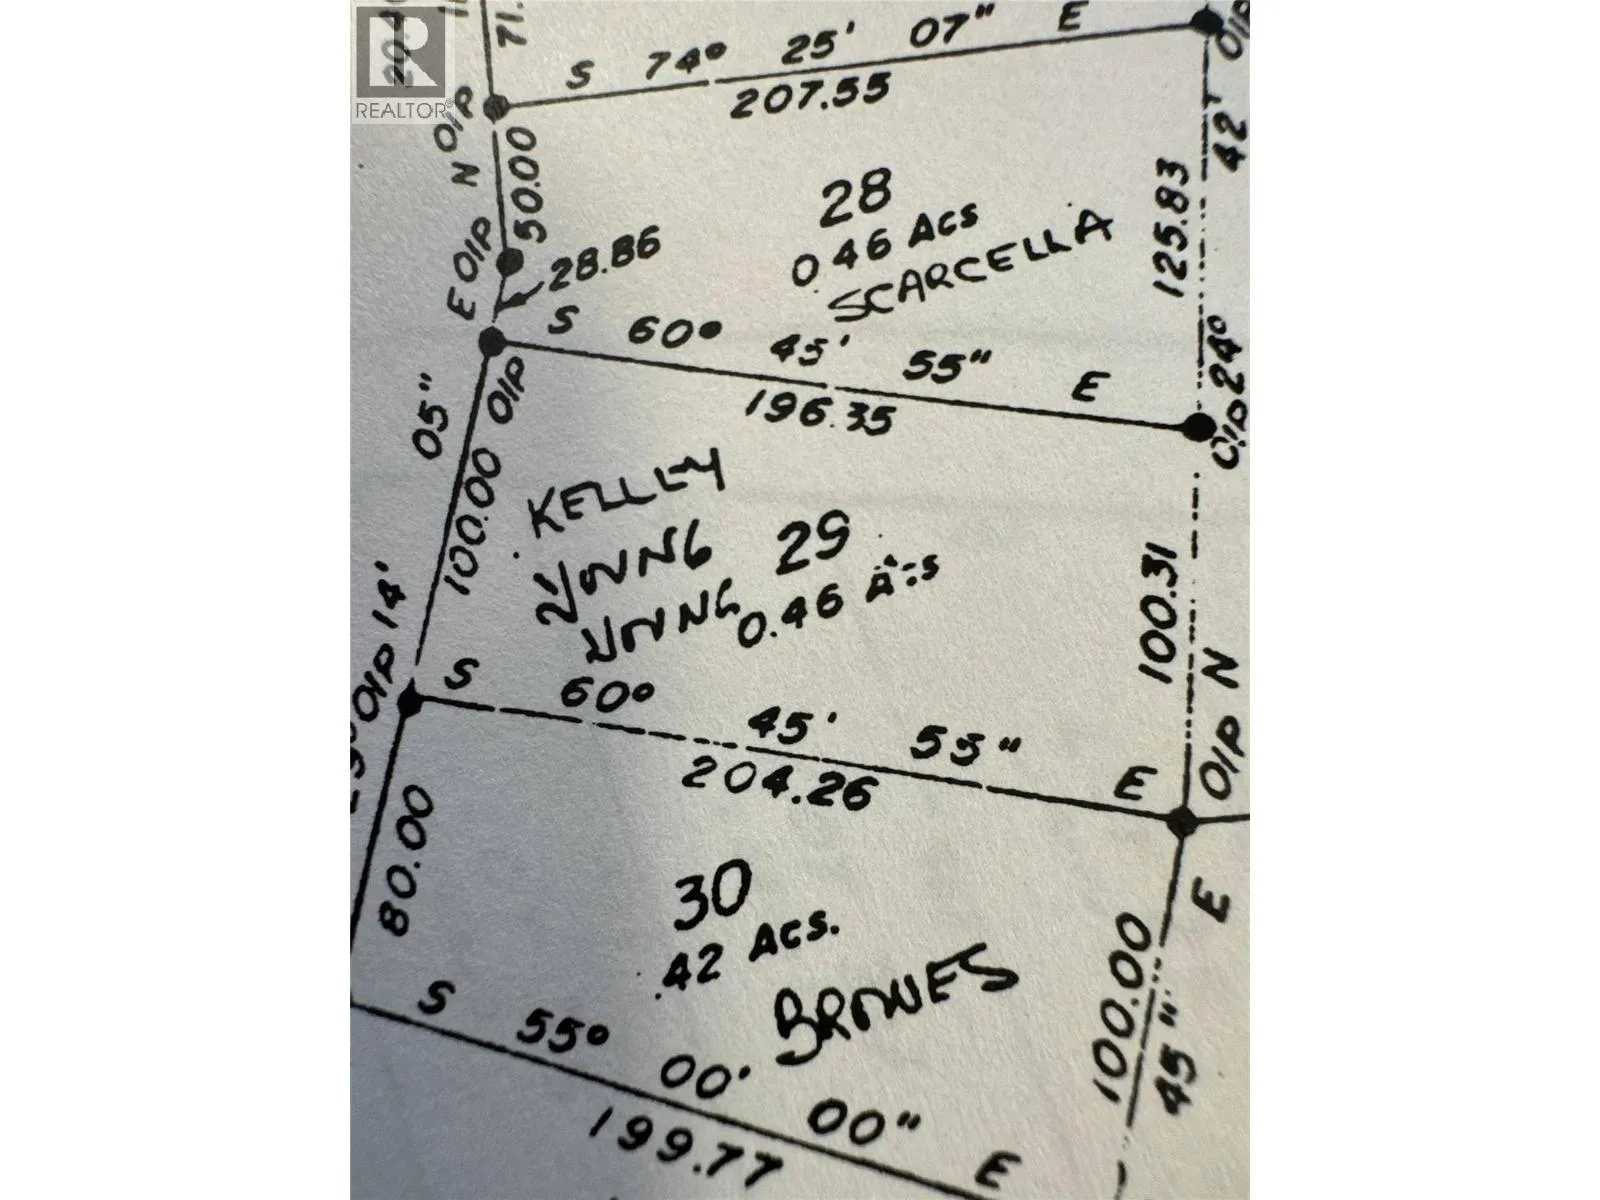 REALTOR®
71.
S 74° 25' 07" E
207.55
OIP
N
50.00
E OIP
28.86
28
0.46 Acs
SCARCELLA
125.83
42'
S 60° 45' 55" E
196.35
OIP
OIP 24°
05"
100.00
KELLEY
YOUNG
YOUNG
29
0.46 Acs
100.31
OIP N
14'
OIP
S 60° 45' 55" E
204.26
80.00
30
.42 Acs.
BROWES
E
100.00
45"
S 55° 00' 00" E
199.77